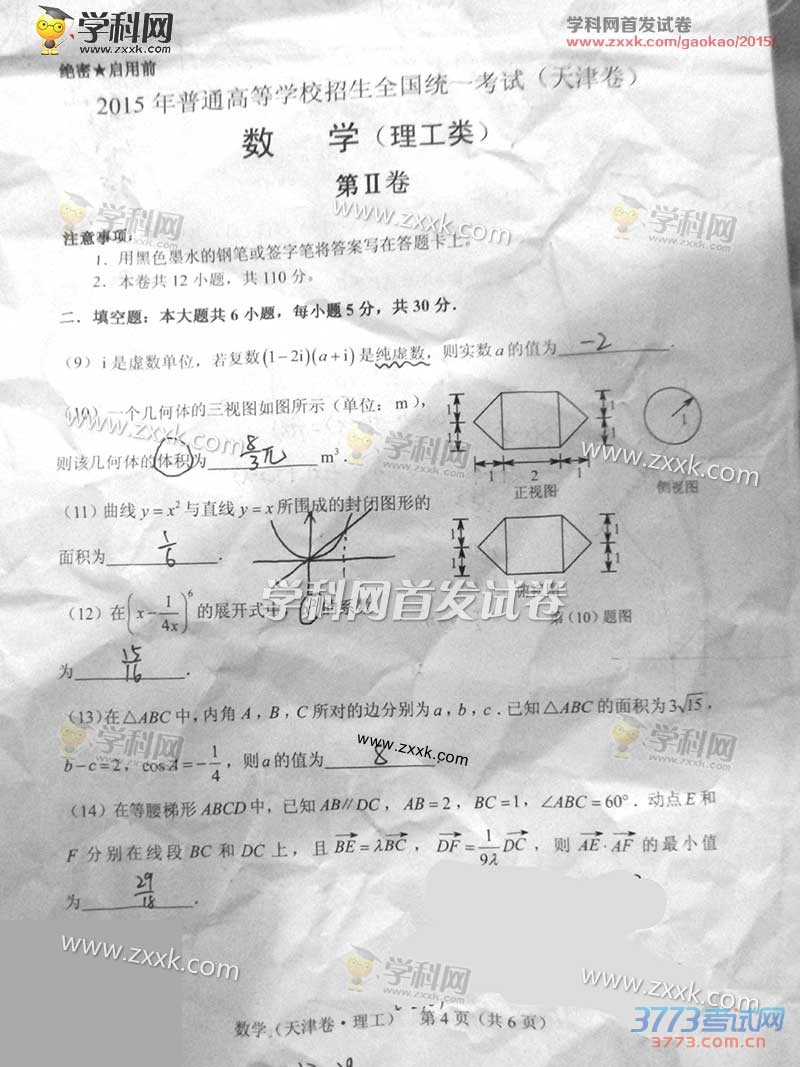 学科网
www.zxxk.com
学科网首发试卷
www.zxxk.com/gaokao/2015/
绝密★启用前
2015 年普通高等学校招生全国统一考试（天津卷）
数 学（理工类）
第Ⅱ卷
学科网
www.zxxk.com
学科网
注意事项：
1．用黑色墨水的钢笔或签字笔将答案写在答题卡上。
2．本卷共 12 小题，共 110 分。
二．填空题：本大题共 6 小题，每小题 5 分，共 30 分．
（9）i 是虚数单位，若复数 (1−2i)(a+i) 是纯虚数，则实数 a 的值为 −2 ．
（10）一个几何体的三视图如图所示（单位：m），
则该几何体的体积为 8/3 π m³．
学科网
www.zxxk.com
1 1 1 2 1 1 1 1
正视图
侧视图
（11）曲线 y = x² 与直线 y = x 所围成的封闭图形的
面积为 1/6 ．
1 1 1 1
学科网首发试卷
（12）在 (x − 1/4x)⁶ 的展开式中
第（10）题图
为 15/16 ．
（13）在△ABC 中，内角 A，B，C 所对的边分别为 a，b，c．已知△ABC 的面积为 3√15，
www.zxxk.com
b−c=2，cos A=−1/4，则 a 的值为 8
（14）在等腰梯形 ABCD 中，已知 AB∥DC，AB=2，BC=1，∠ABC=60°．动点 E 和
F 分别在线段 BC 和 DC 上，且 BE→=λBC→，DF→=1/9λ DC→，则 AE→·AF→ 的最小值
为 29/18 ．
www.zxxk.com
学科网
www.zxxk.com
数学（天津卷·理工） 第 4 页（共 6 页）
3773考试网
3773.com.cn